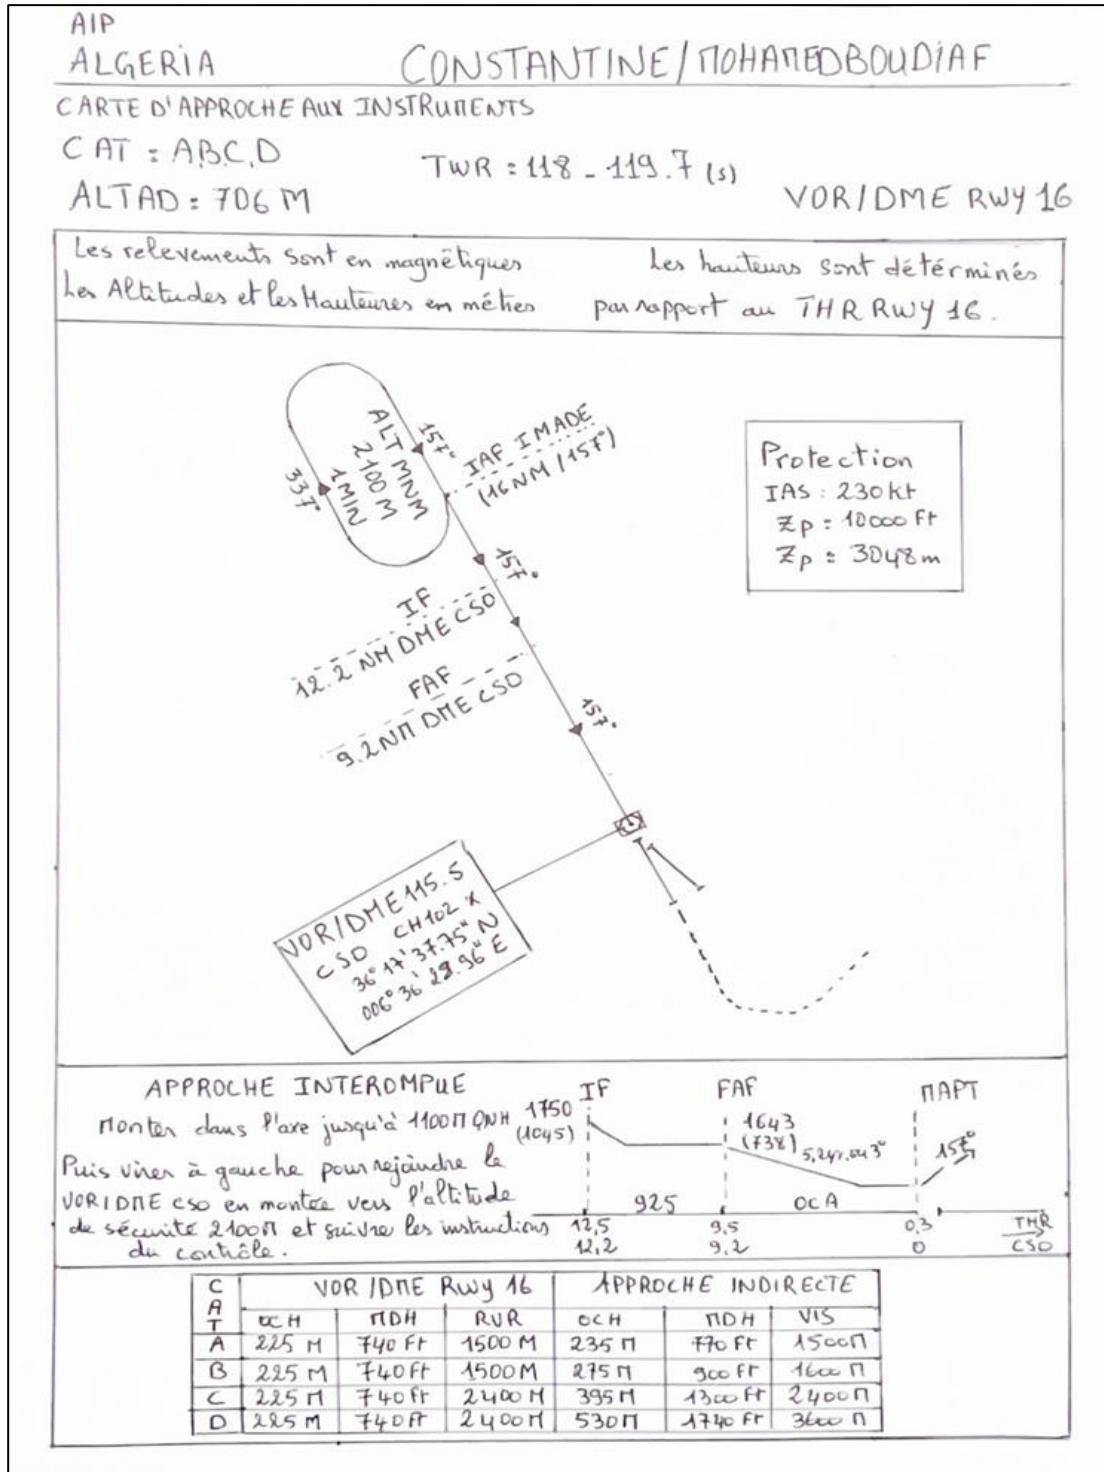 AIP
ALGERIA CONSTANTINE/MOHAMEDBOUDIAF
CARTE D'APPROCHE AUX INSTRUMENTS
CAT : A.B.C.D
TWR : 118 - 119.7 (s)
ALTAD : 706 M
VOR/DME RWY 16
Les relevements sont en magnétiques
Les Altitudes et les Hauteures en métres
Les hauteurs sont détérminés
par rapport au THR RWY 16.
ALT MNM
2100 M
1MIN
157°
337°
IAF IMADE
(16NM/157°)
Protection
IAS : 230 kt
Zp : 10000 Ft
Zp : 3048 m
157°
IF
12.2 NM DME CSO
FAF
9.2NM DME CSO
157°
VOR/DME 115.5
CSO CH102 X
36° 17' 37.75" N
006° 36' 29.96" E
APPROCHE INTEROMPUE
Monter dans l'axe jusqu'à 1100M QNH
Puis virer à gauche pour rejoindre le
VOR/DME CSO en montée vers l'altitude
de sécurité 2100M et suivre les instructions
du contrôle.
IF FAF MAPT
1750
(1045)
1643
(738)
157°
925 OCA
12,5 9,5 0,3 THR
12,2 9,2 0 CSO
CAT VOR/DME Rwy 16 APPROCHE INDIRECTE
OCH MDH RVR OCH MDH VIS
A 225 M 740 Ft 1500 M 235 M 770 Ft 1500M
B 225 M 740 Ft 1500M 275 M 900 Ft 1600 M
C 225 M 740 Ft 2400 M 395 M 1300 Ft 2400 M
D 225 M 740 Ft 2400M 530 M 1740 Ft 3600 M